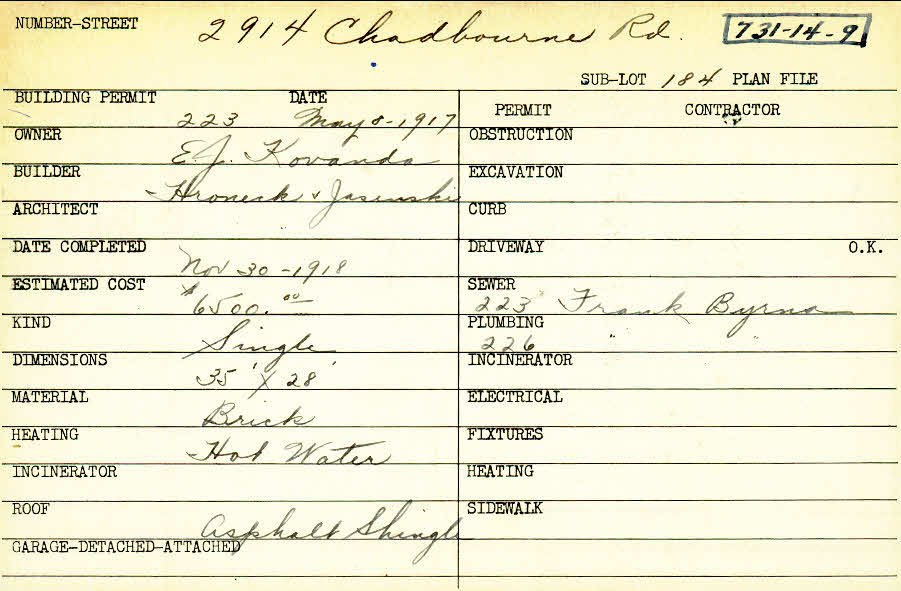 NUMBER-STREET 2914 Chadbourne Rd. 731-14-9
SUB-LOT 184 PLAN FILE
BUILDING PERMIT DATE
223 May 8-1917
PERMIT CONTRACTOR
OWNER E.J. Kovanda
OBSTRUCTION
BUILDER Hroneck & Jasinski
EXCAVATION
ARCHITECT
CURB
DATE COMPLETED Nov 30-1918
DRIVEWAY O.K.
ESTIMATED COST $6500.00
SEWER 223 Frank Byrne
KIND Single
PLUMBING 226 " "
DIMENSIONS 35' X 28'
INCINERATOR
MATERIAL Brick
ELECTRICAL
HEATING Hot Water
FIXTURES
INCINERATOR
HEATING
ROOF Asphalt Shingle
SIDEWALK
GARAGE-DETACHED-ATTACHED